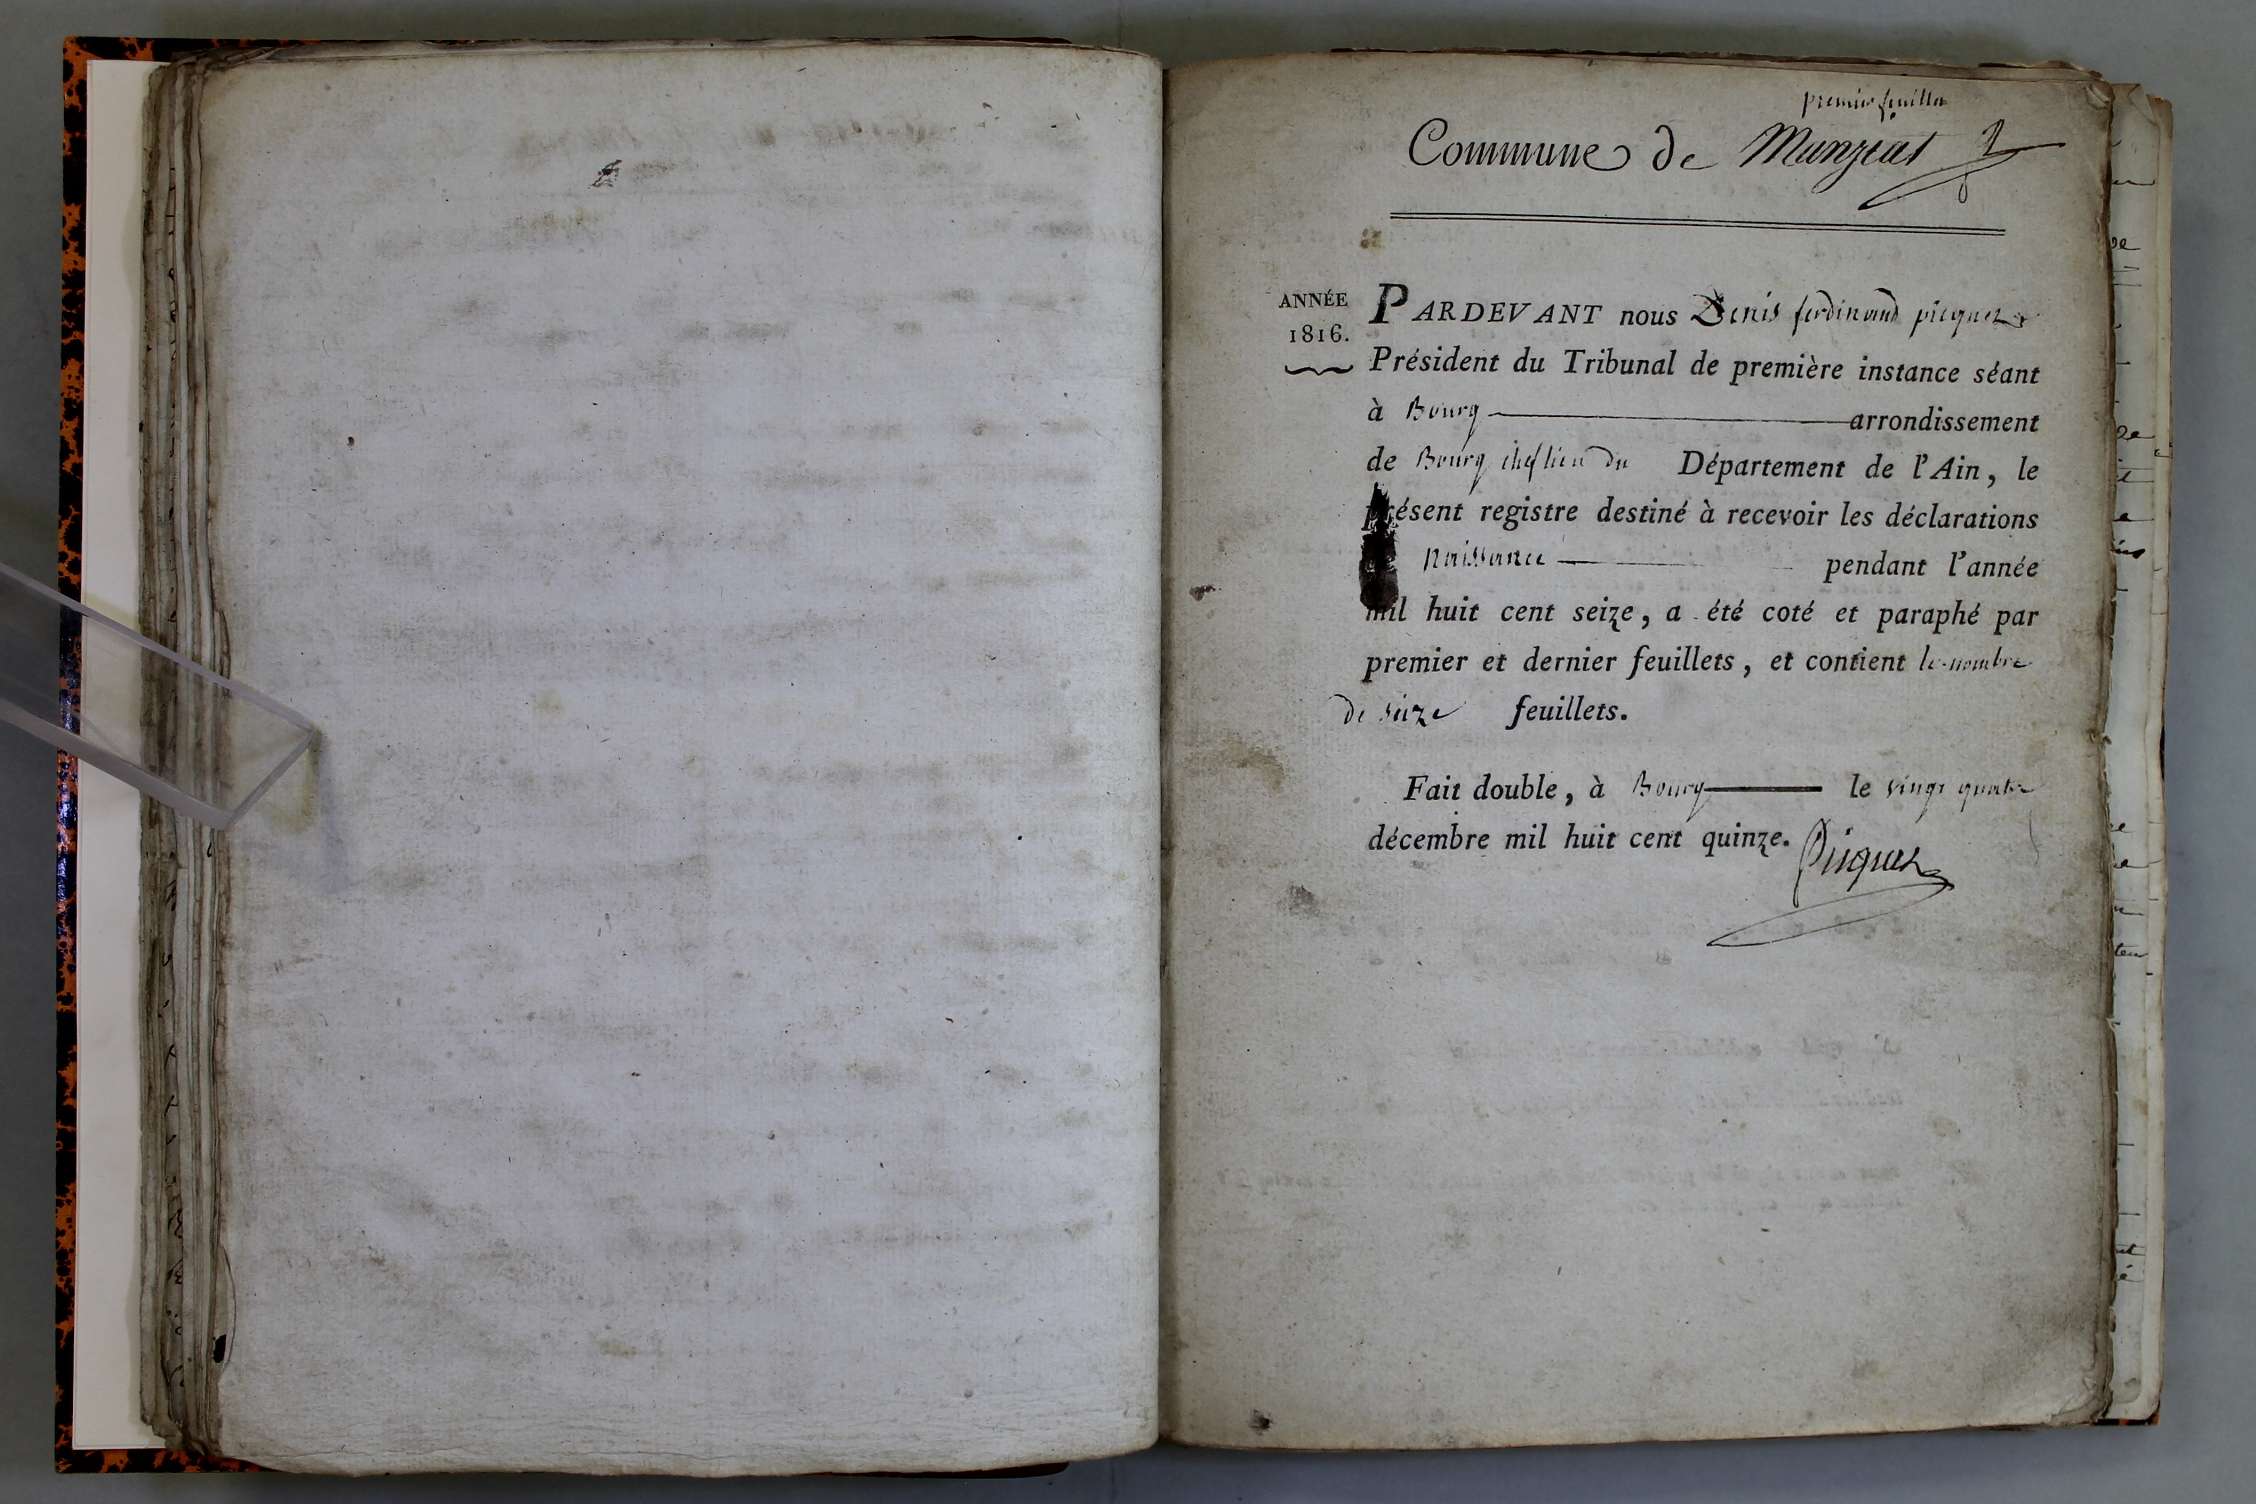 premier feuillet
Commune de Manziat
ANNÉE
1816.
PARDEVANT nous Denis ferdinand picquet
Président du Tribunal de première instance séant
à Bourg arrondissement
de Bourg chef lieu du Département de l'Ain, le
présent registre destiné à recevoir les déclarations
naissance pendant l'année
mil huit cent seize, a été coté et paraphé par
premier et dernier feuillets, et contient le nombre
de seize feuillets.
Fait double, à Bourg le vingt quatre
décembre mil huit cent quinze.
Picquet